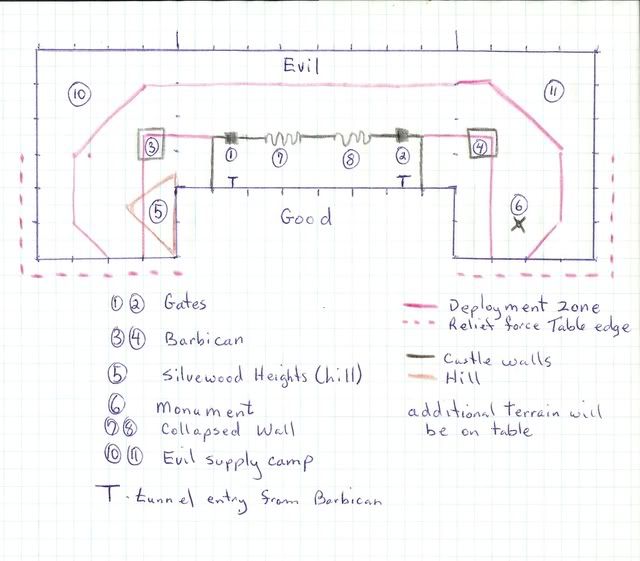 Evil
10
11
3
1
7
8
2
4
T
T
5
6
Good
1 2 Gates
3 4 Barbican
5 Silvewood Heights (hill)
6 Monument
7 8 Collapsed Wall
10 11 Evil supply camp
T - tunnel entry from Barbican
Deployment Zone
Relief force Table edge
Castle walls
Hill
additional terrain will
be on table